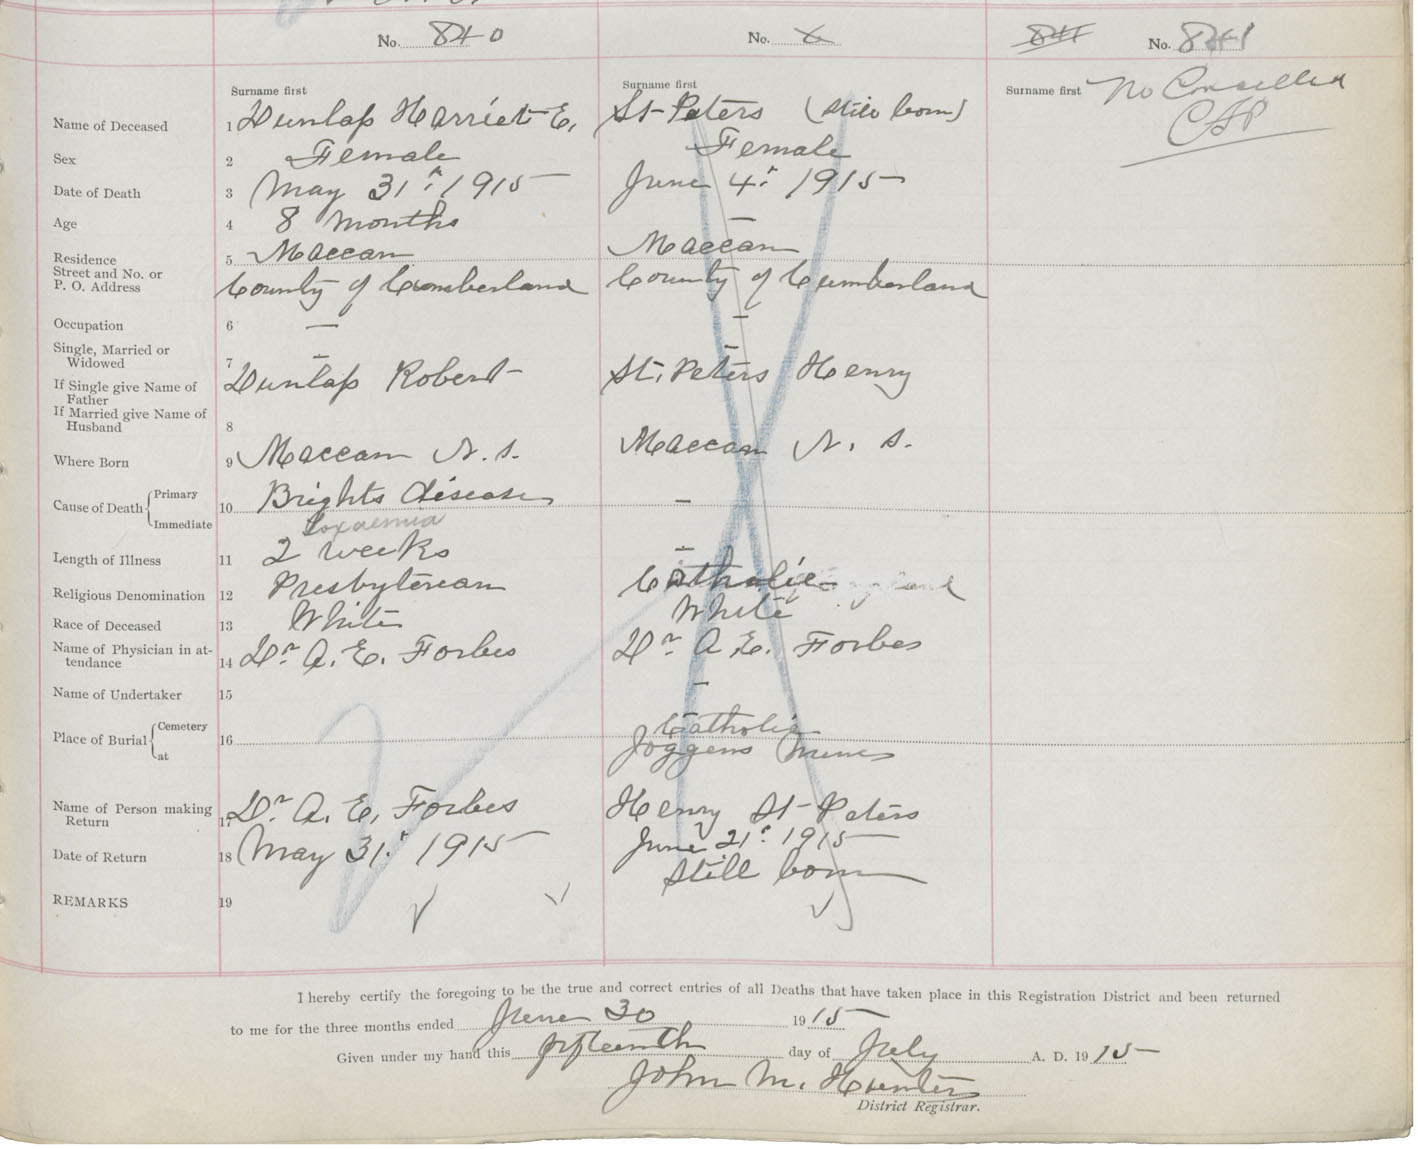 No. 840
No.
841 No. 841
Surname first
Surname first
Surname first No Cancelled
CAP
Name of Deceased 1 Dunlap Harriet E. St-Peters (still born)
Sex 2 Female Female
Date of Death 3 May 31st 1915 June 4th 1915
Age 4 8 months —
Residence 5 Maccan Maccan
Street and No. or
P. O. Address County of Cumberland County of Cumberland
Occupation 6 — —
Single, Married or
Widowed 7 — —
If Single give Name of
Father Dunlap Robert St. Peters Henry
If Married give Name of
Husband 8
Where Born 9 Maccan N.S. Maccan N. S.
Cause of Death Primary 10 Brights disease —
Immediate Toxaemia
Length of Illness 11 2 weeks —
Religious Denomination 12 Presbyterian Catholic
Race of Deceased 13 White White
Name of Physician in at-
tendance 14 Dr. A. E. Forbes Dr. A. E. Forbes
Name of Undertaker 15 —
Place of Burial Cemetery 16 Catholic
at Joggens Mines
Name of Person making
Return 17 Dr. A. E. Forbes Henry St-Peters
Date of Return 18 May 31st 1915 June 21st 1915
Still born
REMARKS 19
I hereby certify the foregoing to be the true and correct entries of all Deaths that have taken place in this Registration District and been returned
to me for the three months ended June 30 1915
Given under my hand this fifteenth day of July A. D. 1915
John M. Hunter
District Registrar.